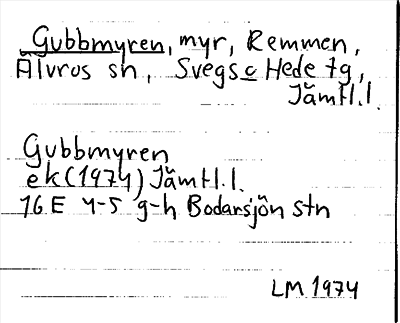 Gubbmyren, myr, Remmen,
Älvros sn, Svegs o Hede tg,
Jämtl.l.
Gubbmyren
ek (1974) Jämtl.l.
16E 4-5 g-h Bodarsjön stn
LM 1974